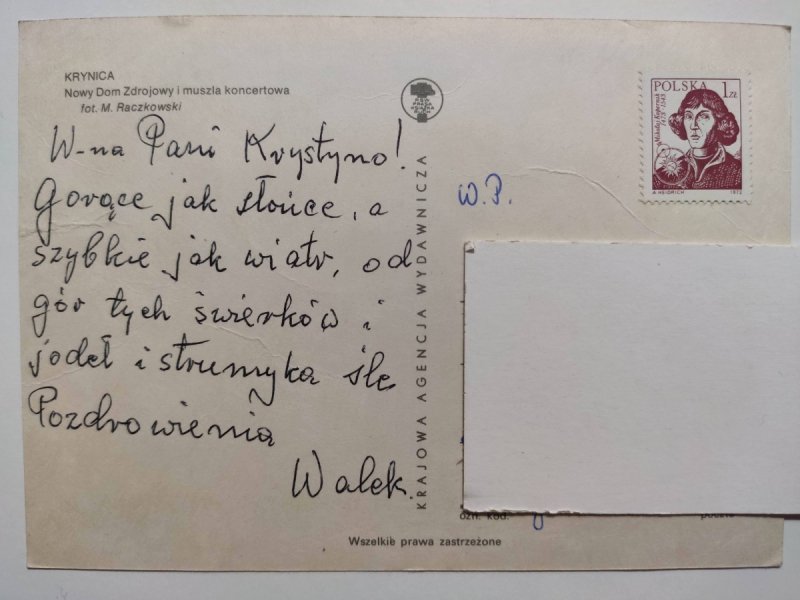 KRYNICA
Nowy Dom Zdrojowy i muszla koncertowa
fot. M. Raczkowski
W-na Pani Krystyno!
Gorące jak słońce, a
szybkie jak wiatr, od
gór tych świerków i
jodeł i strumyka śle
Pozdrowienia
Walek.
KRAJOWA AGENCJA WYDAWNICZA
W.P.
POLSKA 1 ZŁ
Mikołaj Kopernik
1473-1543
A. HEIDRICH 1972
ozn. kod.
Wszelkie prawa zastrzeżone